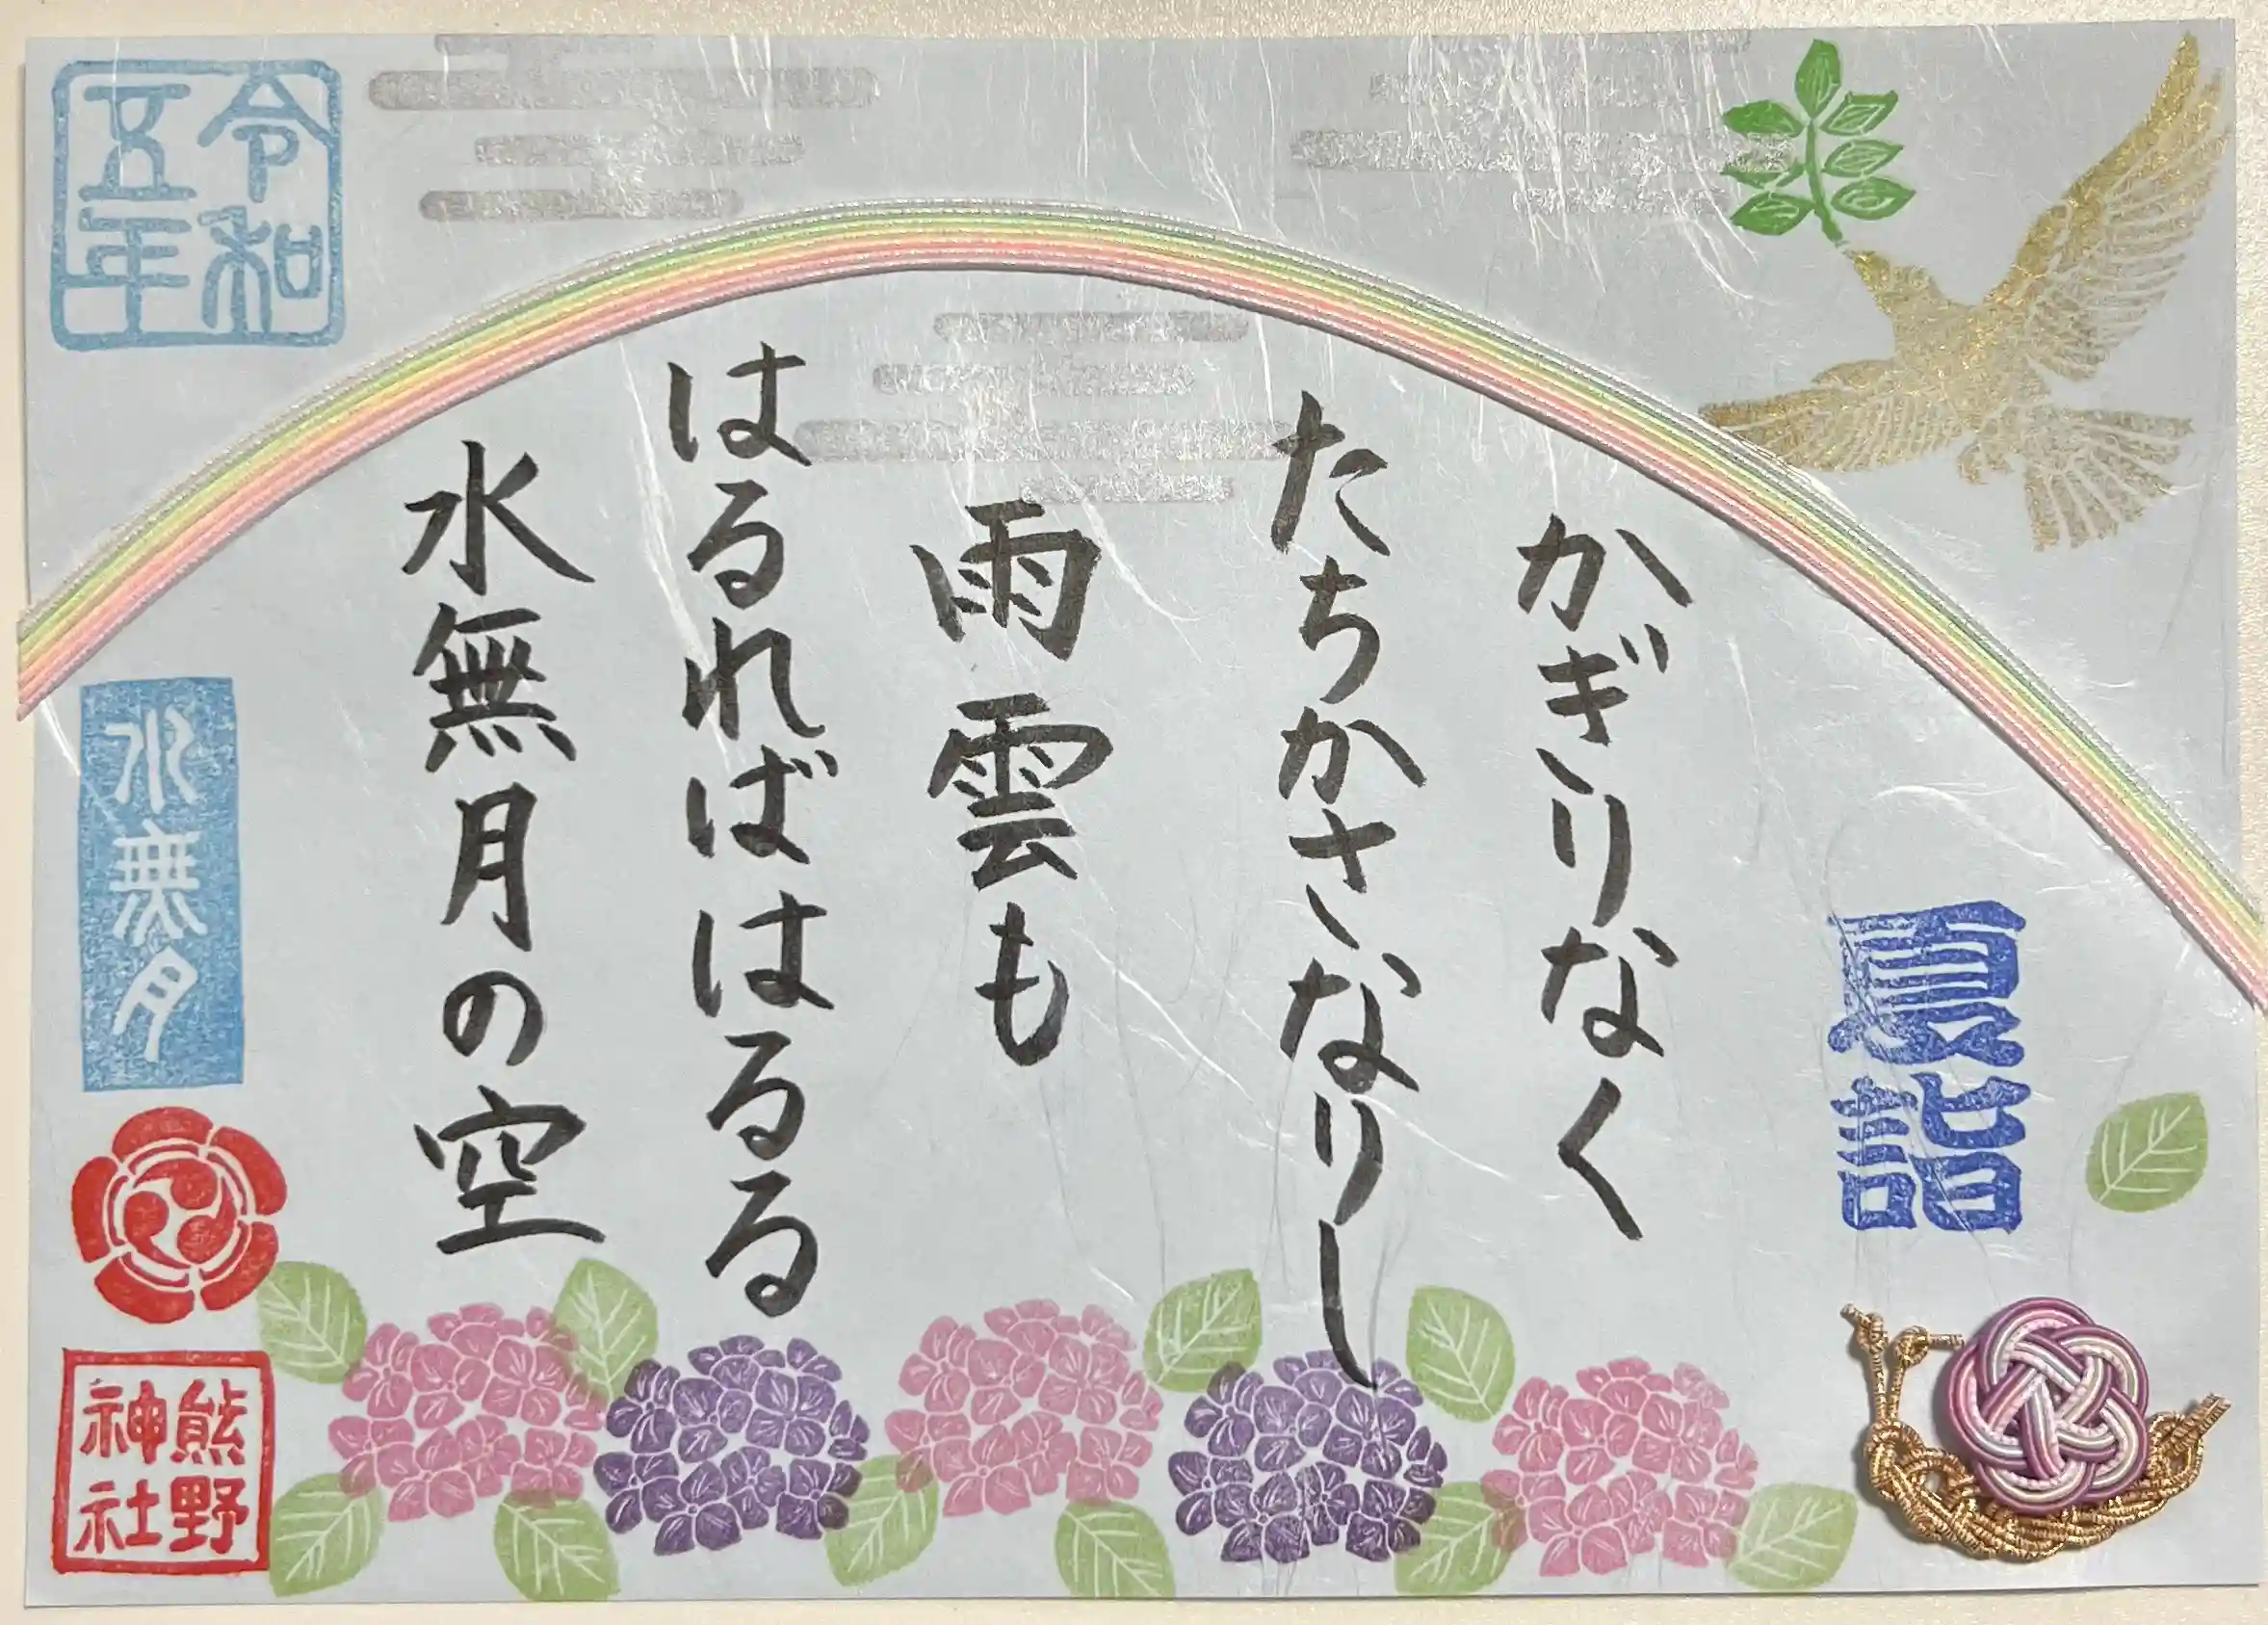 夏詣
かぎりなく
たちかさなりし
雨雲も
はるればはるる
水無月の空
令和
五年
水無月
熊野
神社